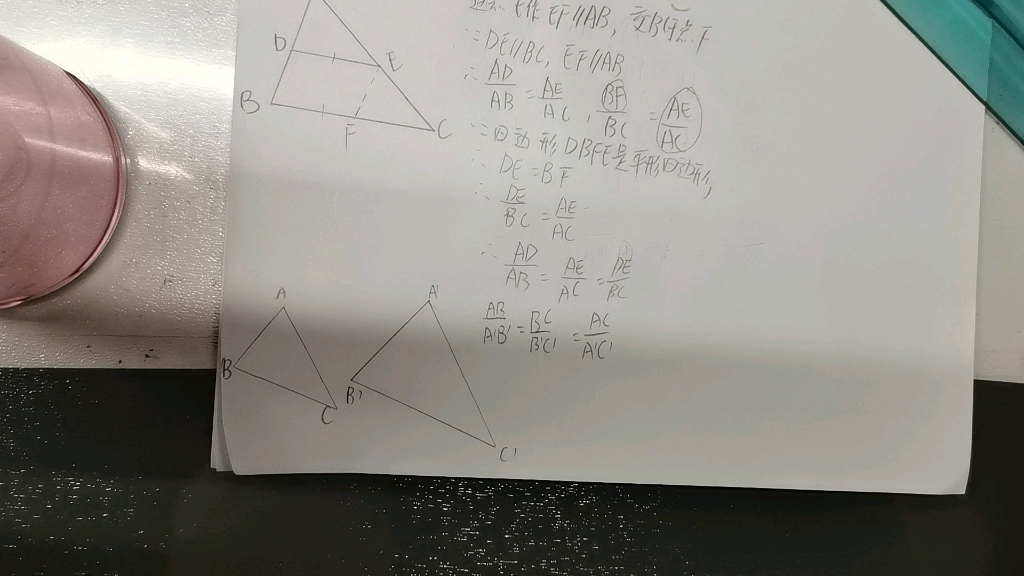 过点E作EF∥AB,交BC于点F
∵DE∥BC,EF∥AB
∴ AD/AB = AE/AC , BF/BC = AE/AC
∵四边形DBFE是平行四边形,
∴ DE=BF
∴ DE/BC = AE/AC
∴ AD/AB = AE/AC = DE/BC
AB/A'B' = BC/B'C' = AC/A'C'
D
E
B
F
C
A
B
C
A'
B'
C'